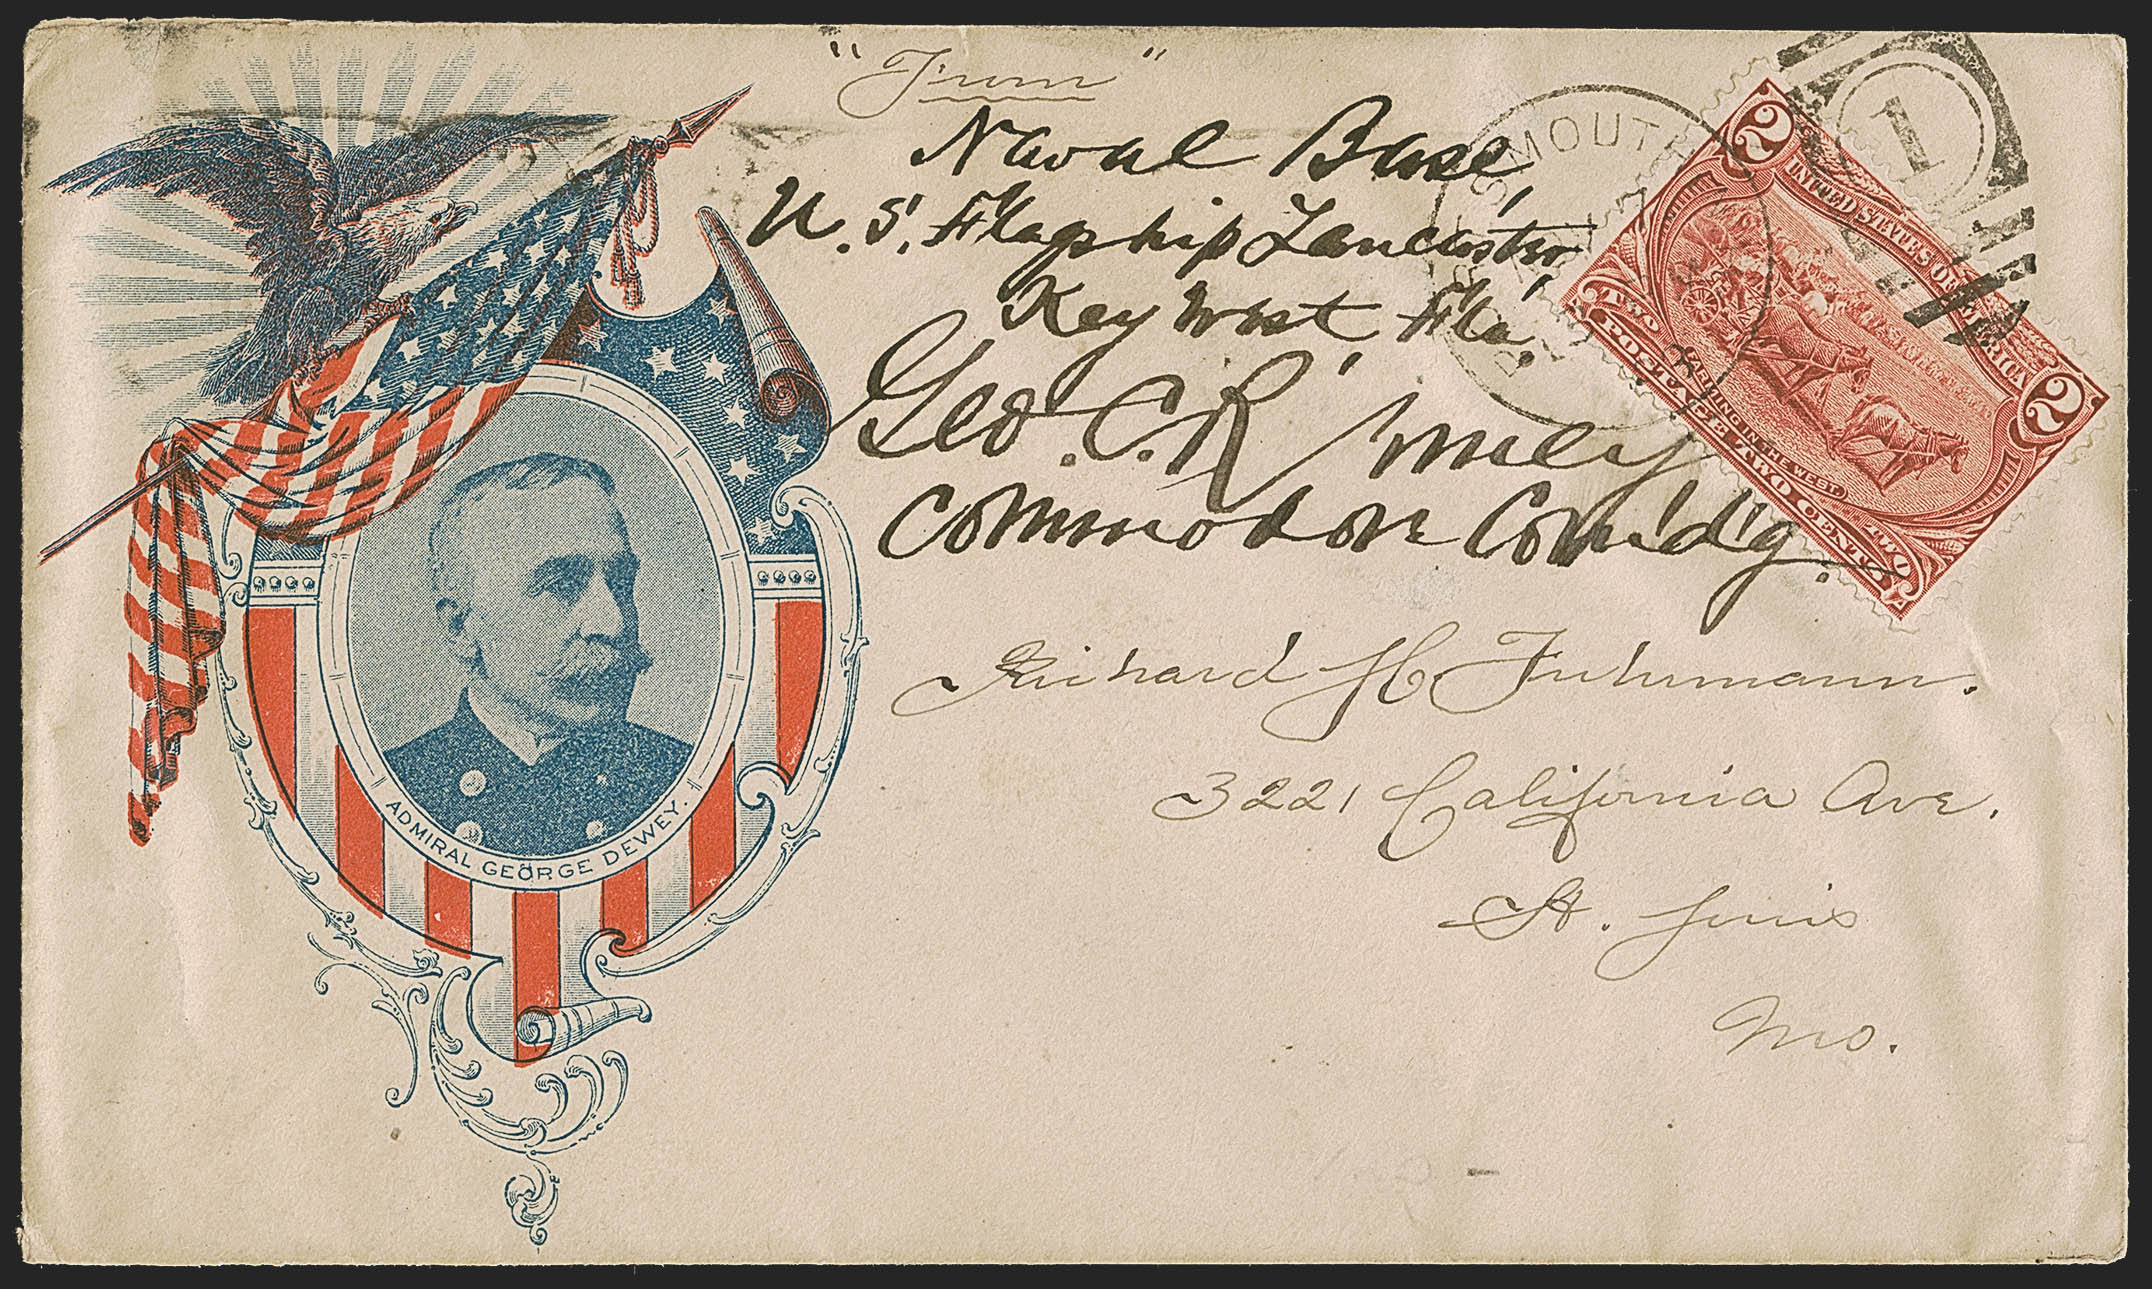 "From"
Naval Base,
U.S. Flagship Lancaster,
Key West Fla.
Geo. C. Remey
Commodore Com'd'g.
Richard H. Fuhrmann.
3221 California Ave.
St. Louis
Mo.
ADMIRAL GEORGE DEWEY.
2 UNITED STATES OF AMERICA 2
FARMING IN THE WEST.
TWO POSTAGE TWO CENTS TWO
SMOUTH
1